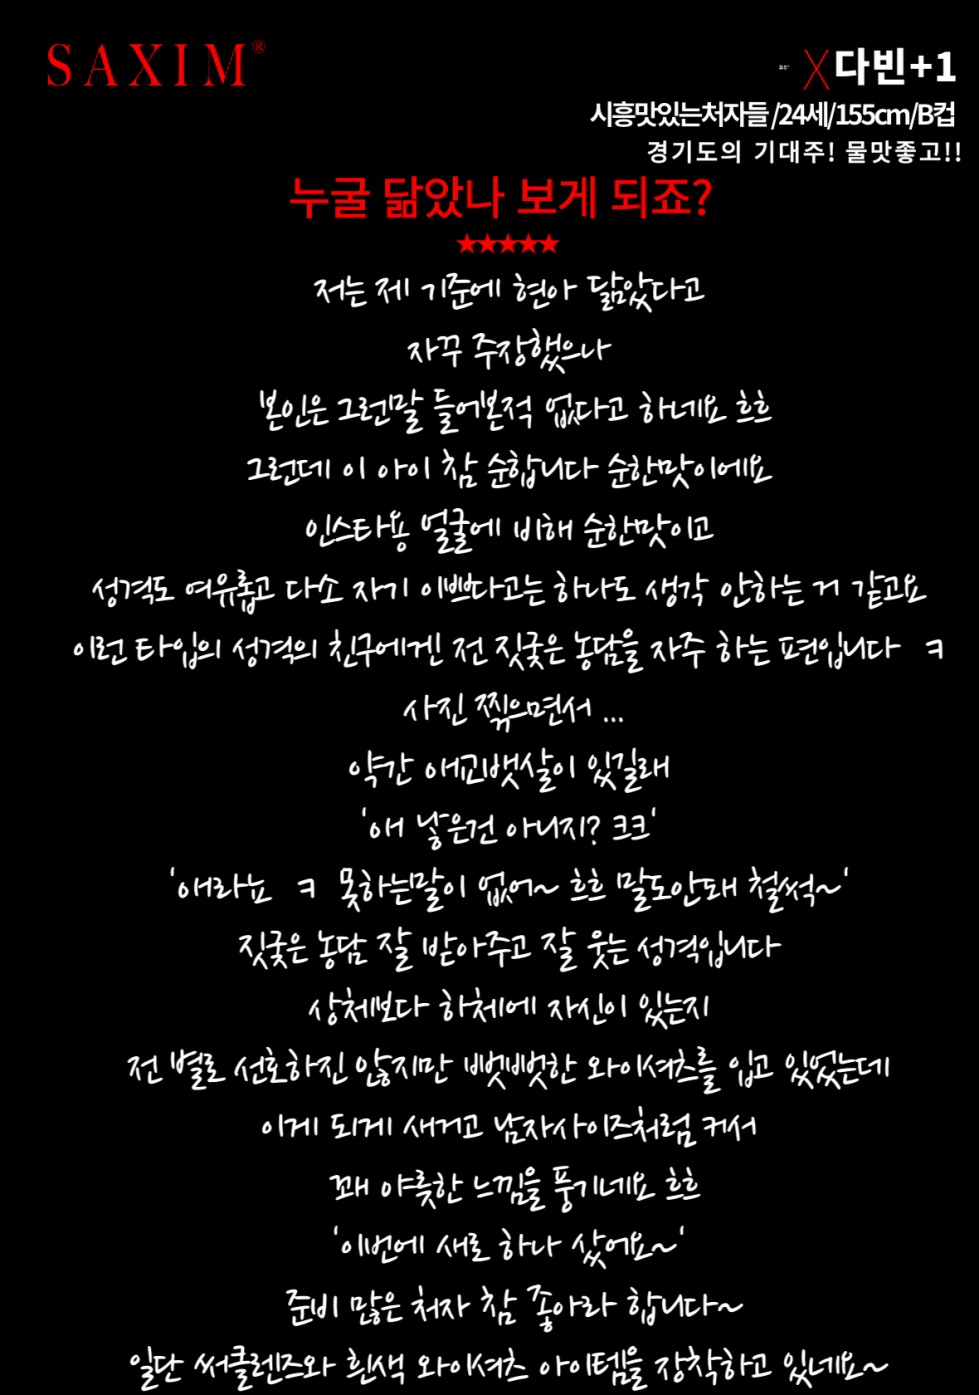 SAXIM®
X다빈+1
시흥맛있는처자들/24세/155cm/B컵
경기도의 기대주! 물맛좋고!!
누굴 닮았나 보게 되죠?
★★★★★
저는 제 기준에 현아 닮았다고
자꾸 주장했으나
본인은 그런말 들어본적 없다고 하네요 흐흐
그런데 이 아이 참 순합니다 순한맛이에요
인스타용 얼굴에 비해 순한맛이고
성격도 여유롭고 다소 자기 이쁘다고는 하나도 생각 안하는 거 같고요
이런 타입의 성격의 친구에겐 전 짓궂은 농담을 자주 하는 편입니다 ㅋ
사진 찍으면서 ...
약간 애교뱃살이 있길래
'애 낳은건 아니지? 크크'
'애라뇨 ㅋ 못하는말이 없어~ 흐흐 말도안돼 철썩~'
짓궂은 농담 잘 받아주고 잘 웃는 성격입니다
상체보다 하체에 자신이 있는지
전 별로 선호하진 않지만 빳빳한 와이셔츠를 입고 있었는데
이게 되게 새거고 남자사이즈처럼 커서
꽤 야릇한 느낌을 풍기네요 흐흐
'이번에 새로 하나 샀어요~'
준비 많은 처자 참 좋아라 합니다~
일단 써클렌즈와 흰색 와이셔츠 아이템을 장착하고 있네요~